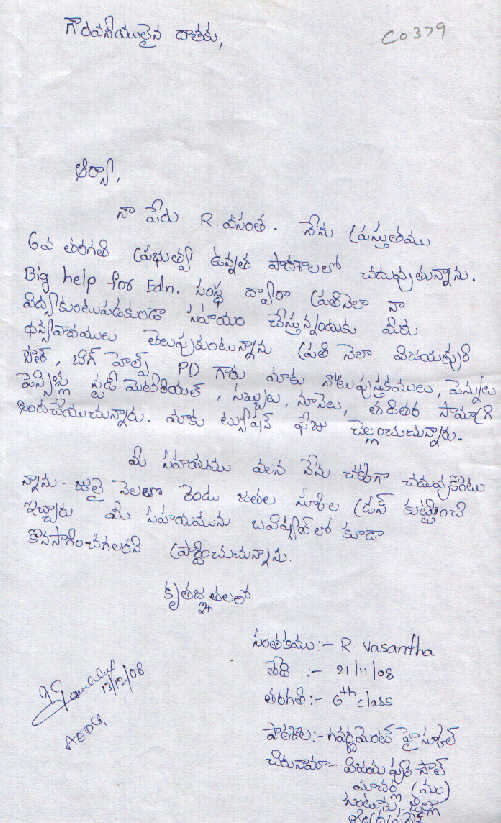 గౌరవనీయులైన దాతకు,
CO379
ఆర్యా,
నా పేరు R వసంత. నేను ప్రస్తుతము
6వ తరగతి ప్రభుత్వ ఉన్నత పాఠశాలలో చదువుతున్నాను.
Big help for Edn. సంస్థ ద్వారా ప్రతినెలా నా
సహాయం చేస్తున్నందుకు మీకు
ధన్యవాదములు తెలుపుకుంటున్నాను ప్రతి నెలా విజయపురి
సౌత్, బిగ్ హెల్ప్ PD గారు మాకు నోటుపుస్తకములు, పెన్నులు
పెన్సిల్లు స్టడీ మెటీరియల్, సబ్బులు, నూనెలు, తదితర సామాగ్రి
అందచేయుచున్నారు. మాకు ట్యూషన్ ఫీజు చెల్లించుచున్నారు.
మీ సహాయము వలన నేను చక్కగా చదువుకొంటు
న్నాను. జులై నెలలో రెండు జతల స్కూల్ డ్రస్ కుట్టించి
ఇచ్చారు మీ సహాయమును భవిష్యత్ లో కూడా
కొనసాగించగలరని ప్రార్థించుచున్నాను.
కృతజ్ఞతలతో
సంతకము:- R vasantha
తేది :- 21/11/08
తరగతి:- 6th class
పాఠశాల:- గవర్నమెంట్ హైస్కూల్
చిరునామా:- విజయపురి సౌత్
మాచర్ల (మం)
గుంటూరు జిల్లా
13/12/08